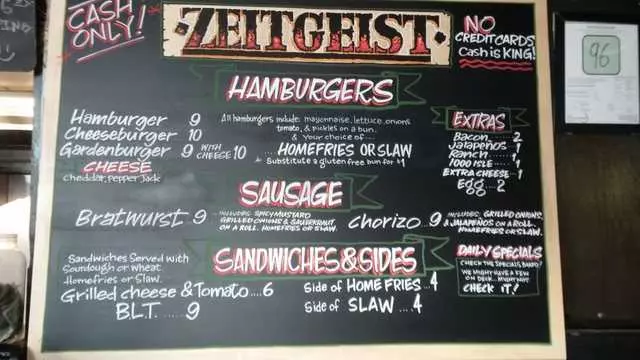 CASH ONLY!
ZEITGEIST
NO
CREDIT CARDS
Cash is KING!
96
HAMBURGERS
Hamburger 9
Cheeseburger 10
Gardenburger 9 WITH CHEESE 10
CHEESE
cheddar, Pepper Jack
All hamburgers include: mayonnaise, lettuce, onions
tomato, & pickles on a bun.
& your choice of...
HOMEFRIES OR SLAW
* Substitute a gluten free bun for $1
EXTRAS
Bacon 2
Jalapeños 1
Ranch 1
1000 ISLE 1
EXTRA CHEESE 1
Egg 2
SAUSAGE
Bratwurst 9
INCLUDES SPICY MUSTARD
GRILLED ONIONS & SAUERKRAUT
ON A ROLL. HOMEFRIES OR SLAW.
Chorizo 9
INCLUDES GRILLED ONIONS
& JALAPEÑOS ON A ROLL.
HOMEFRIES OR SLAW.
SANDWICHES & SIDES
Sandwiches Served with
Sourdough or Wheat
Homefries or Slaw.
Grilled cheese & Tomato....6
B.L.T. ... 9
Side of HOMEFRIES...4
Side of SLAW ...4
DAILY SPECIALS
CHECK THE SPECIALS BOARD!
WE MIGHT HAVE A FEW
ON DECK... MIGHT NOT
CHECK IT!